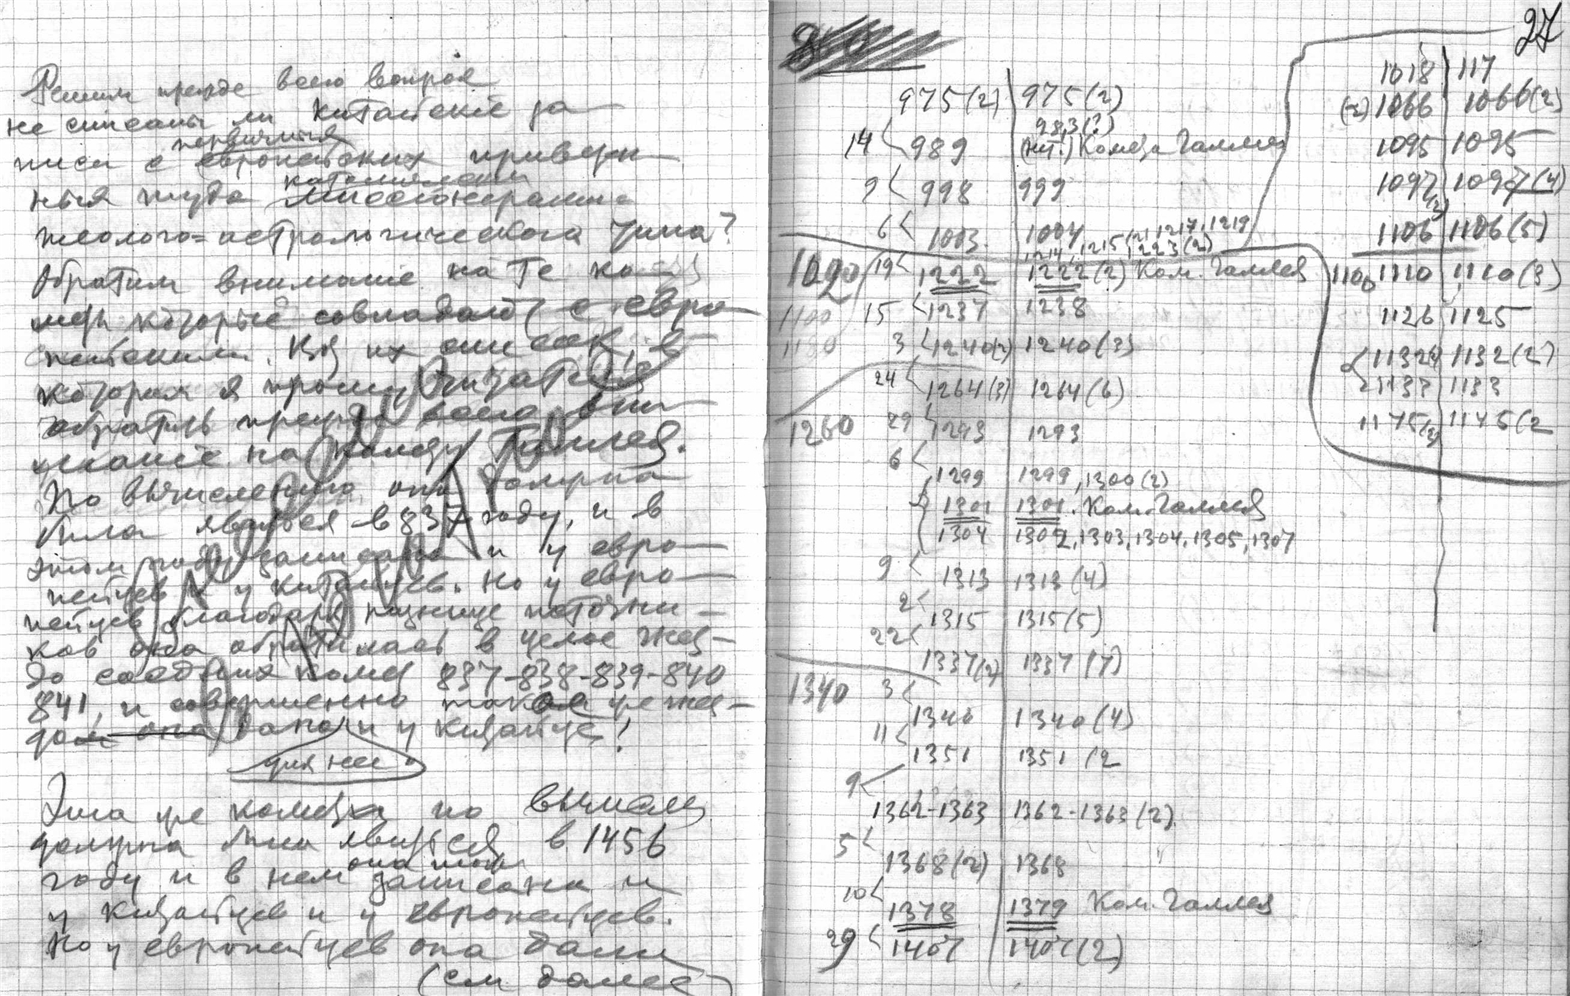 Решим прежде всего вопрос
не списаны ли Китайские за
первичныя
писи с европейских привезен
католическими
ныя туда миссионерами
теолого=астрологического типа?
Обратим внимание на те ко
меты которые совпадают с евро
пейскими. Вот их список, в
котором я прошу читателя
обратить прежде всего вни
мание на комету Галлея.
По вычислению она должна
была явиться в 837 году, и в
этом году записана и у евро
пейцев и у китайцев. Но у евро
пейцев благодаря разнице источни
ков она обратилась в целое
комет 837-838-839-840
841, и совершенно такое же
она дано и у Китайцев!
для нее
Эта же комета по вычислен
должна была явиться в 1456
она тоже
году и в нем записана и
у Китайцев и у европейцев.
Но у европейцев она дана
(см далее
27
975(2) 975(2)
983(?)
14 989 (кит.) Комета Галлея
9 998 999
6 1003 1004
1214, 1215(2), 1217, 1219
1223(2)
1090 19 1222 1222(2) Ком. Галлея
1100 15 1237 1238
1180 3 1240(2) 1240(3)
24 1264(3) 1264(6)
1260 29 1293 1293
6 1299 1299, 1300(2)
1301 1301. Ком. Галлея
1304 1302, 1303, 1304, 1305, 1307
9 1313 1313(4)
2 1315 1315(5)
22 1337(2) 1337(7)
1340 3 1340 1340(4)
11 1351 1351(2
9 1362-1363 1362-1363(2)
5 1368(2) 1368
10 1378 1379 Ком. Галлея
29 1407 1407(2)
1018 117
(2) 1066 1066(2)
1095 1095
1097(2) 1097(4)
1106 1106(5)
1100 1110 1110(3)
1126 1125
1132(2) 1132(2)
1133 1133
1145(3) 1145(2